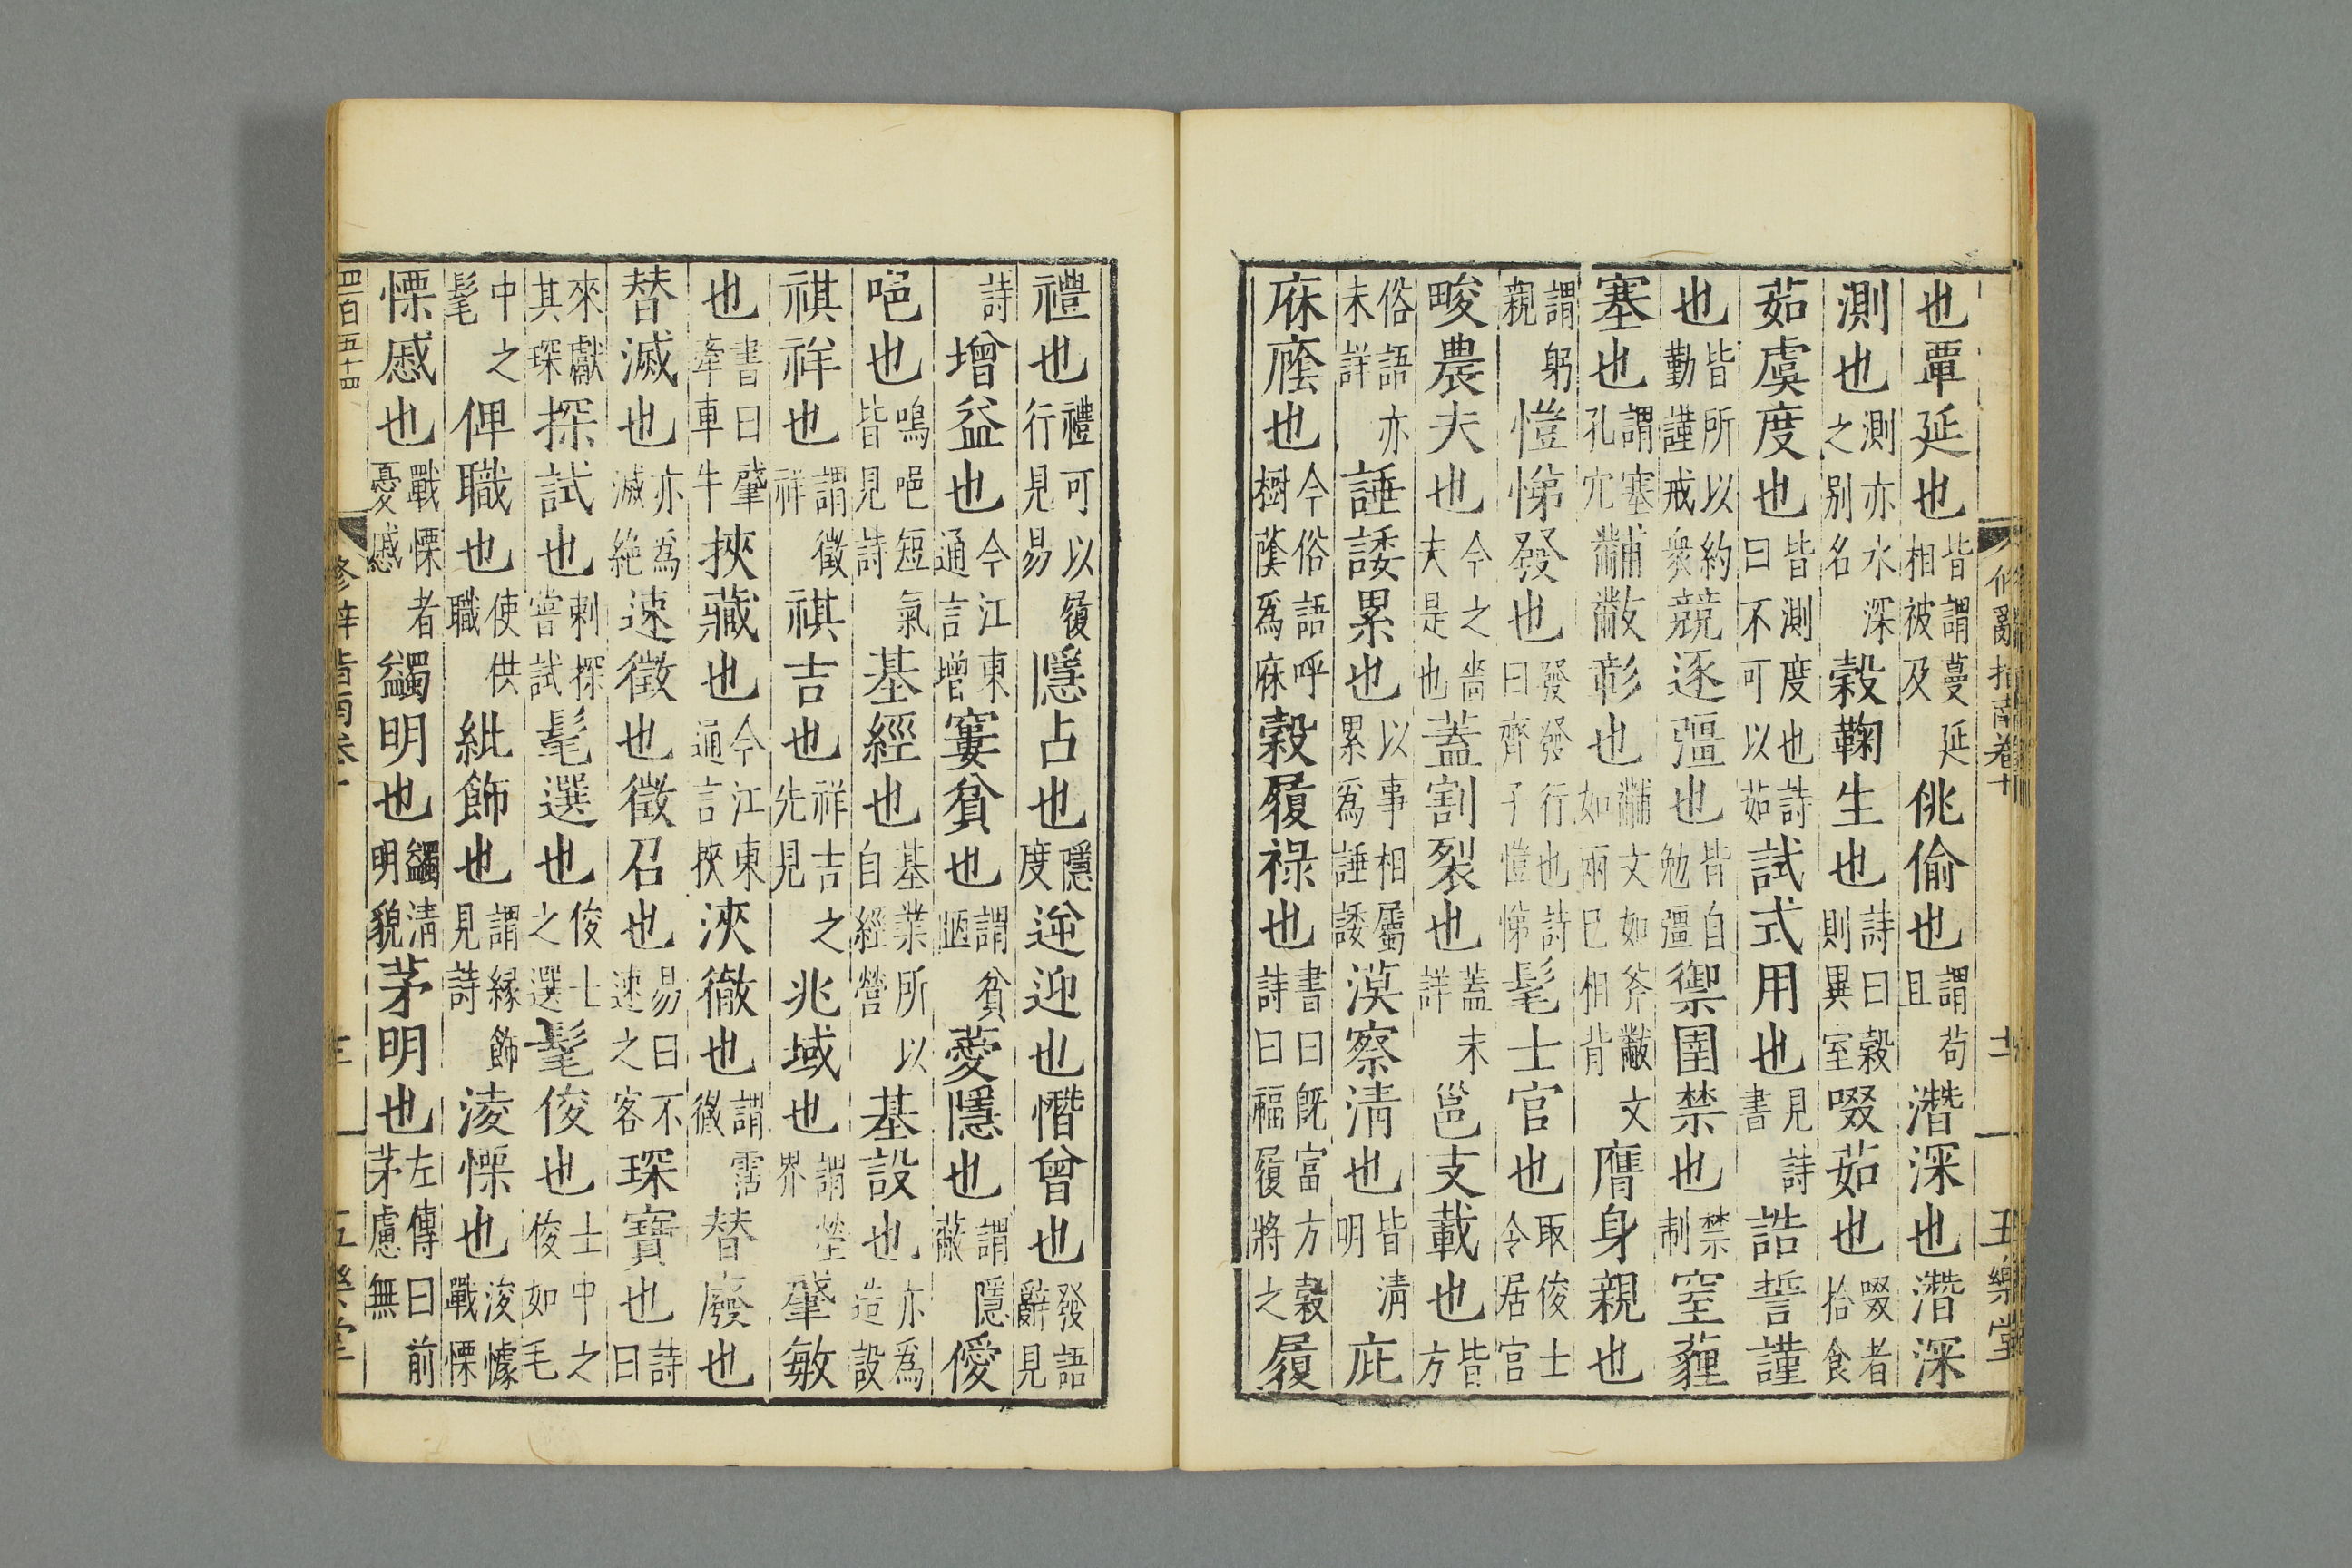 修辭指南卷十 十二 五樂堂
也覃延也皆謂蔓延相被及佻偷也謂苟且潛深也潛深
測也測亦水深之別名穀鞠生也詩曰穀則異室啜茹也啜者拾食
茹虞度也皆測度也詩曰不可以茹試式用也見詩書誥誓謹
也皆所以約勤謹戒衆競逐彊也皆自勉彊禦圉禁也禁制窒薶
塞也謂塞孔穴黼黻彰也黼文如斧黻文如兩已相背膺身親也
謂躬親愷悌發也發發行也詩曰齊子愷悌髦士官也取俊士令居官
畯農夫也今之嗇夫是也蓋割裂也蓋未詳邕支載也皆方
俗語亦未詳諈諉累也以事相屬累爲諈諉漠察清也皆清明庇
庥廕也今俗語呼樹蔭爲庥穀履祿也書曰旣富方穀詩曰福履將之履
禮也禮可以履行見易隱占也隱度逆迎也憯曾也發語辭見
詩增益也今江東通言增窶貧也謂貧陋薆隱也謂隱蔽僾
唈也嗚唈短氣皆見詩基經也基業所以自經營基設也亦爲造設
祺祥也謂徵祥祺吉也祥吉之先見兆域也謂塋界肇敏
也書曰肇牽車牛挾藏也今江東通言挾浹徹也謂霑徹替廢也
替滅也亦爲滅絶速徵也徵召也易曰不速之客琛寶也詩曰
來獻其琛探試也刺探嘗試髦選也俊士之選髦俊也士中之俊如毛
中之髦俾職也使供職紕飾也謂緣飾見詩淩慄也淩懅戰慄
慄慼也戰慄者憂慼蠲明也蠲清明貌茅明也左傳曰前茅慮無
四百五十四